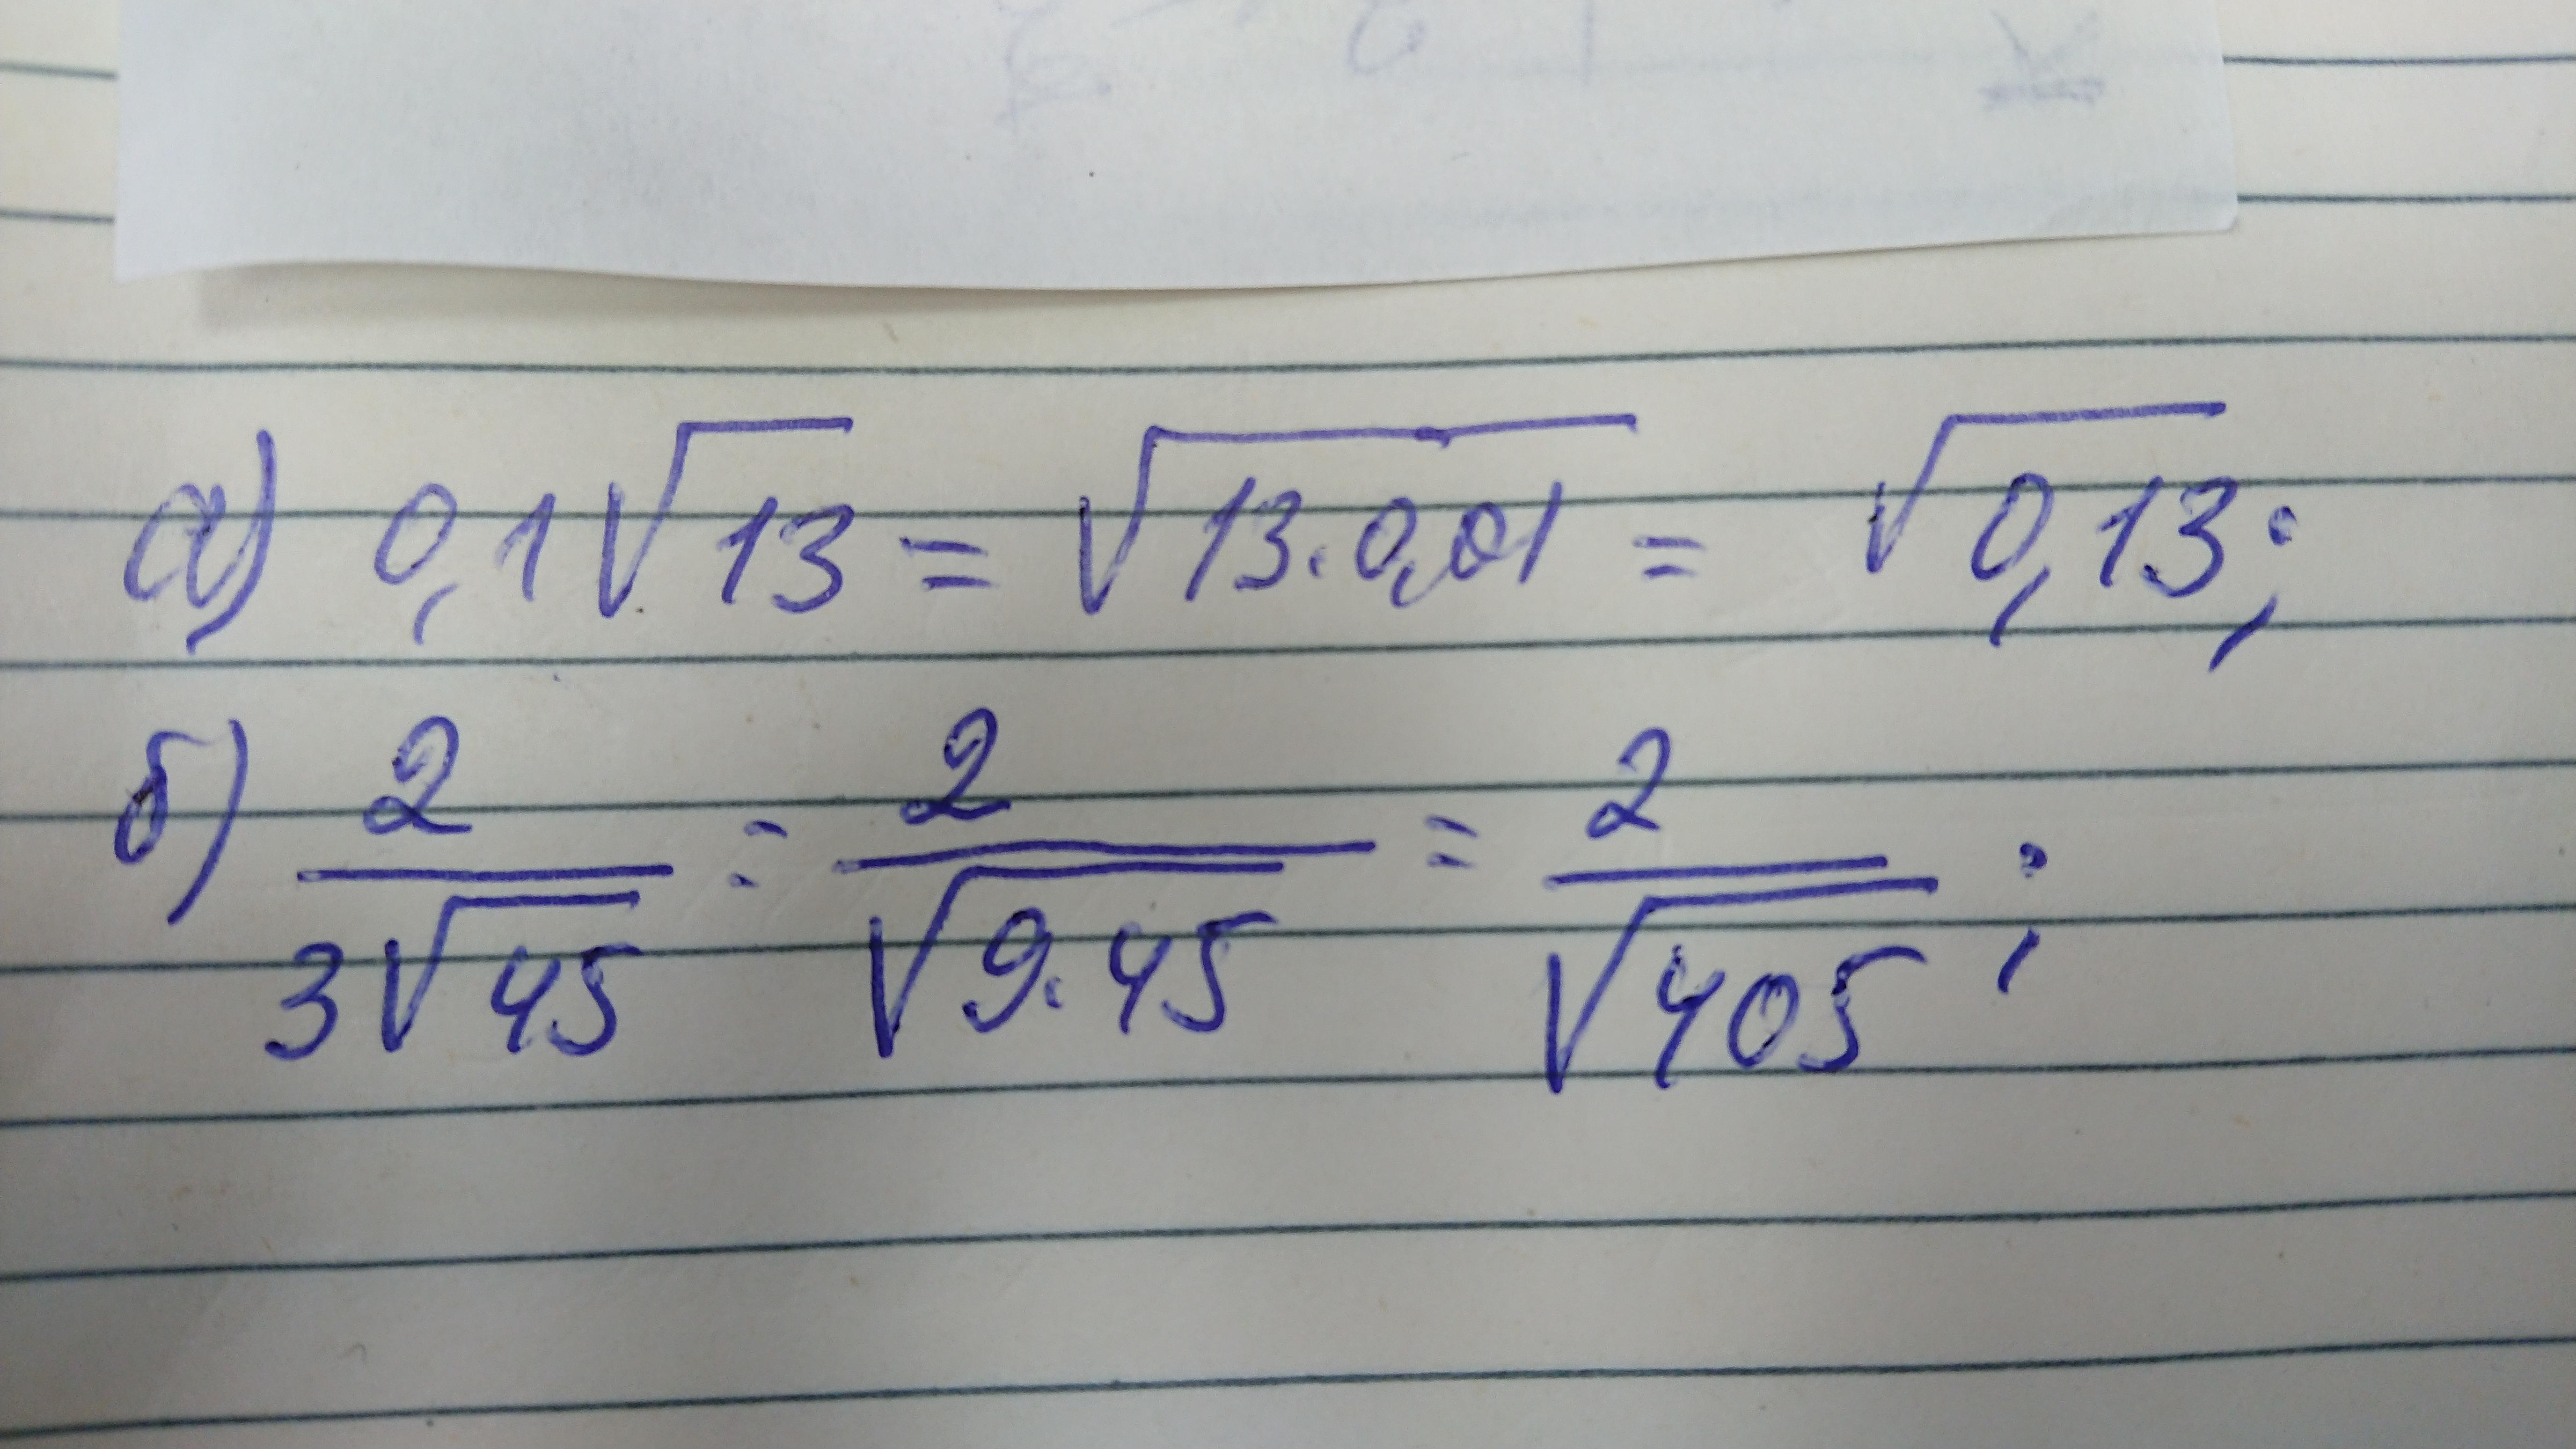 а) 0,1√13 = √13·0,01 = √0,13;
б) 2/3√45 = 2/√9·45 = 2/√405;